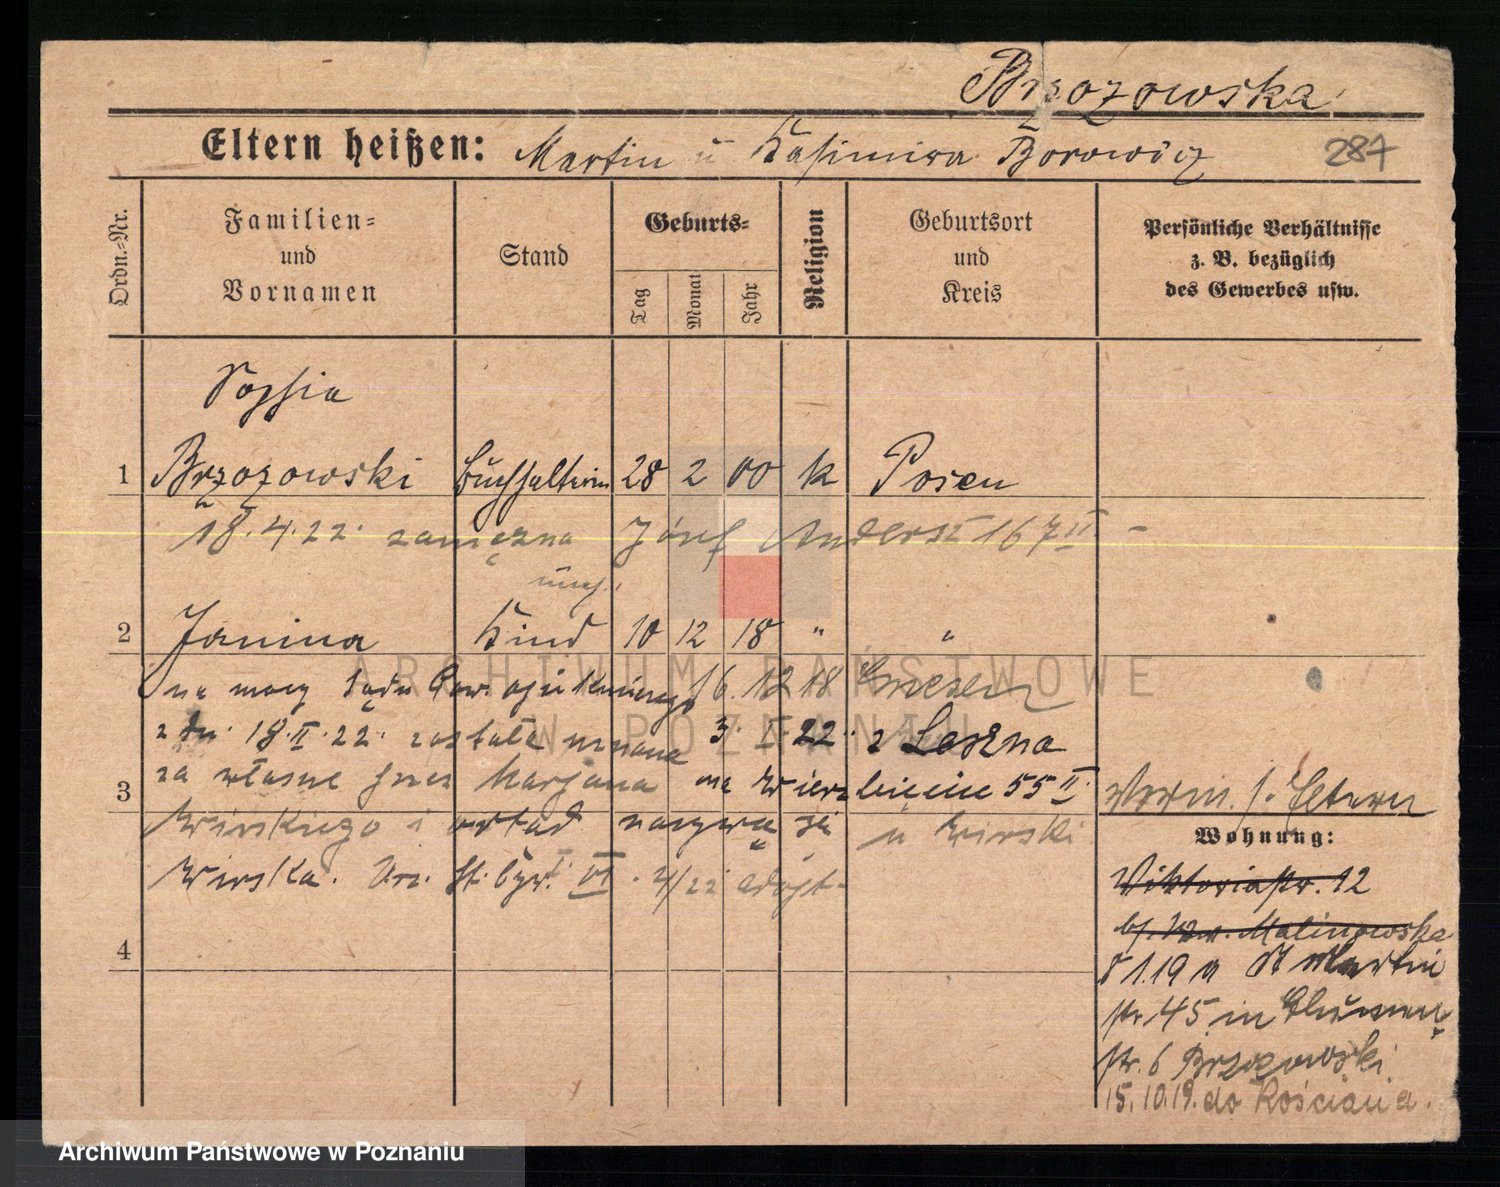 Brzozowska
Eltern heißen: Martin u Kasimira Borowicz 287
Ordn.=Nr.
Familien=
und
Vornamen
Stand
Geburts=
Tag
Monat
Jahr
Religion
Geburtsort
und
Kreis
Persönliche Verhältnisse
z. B. bezüglich
des Gewerbes usw.
Sophia
1 Brzozowski Buchhalterin 28 2 00 k Posen
18.4.22. zamężna Józef Anders 167 II -
2 Janina Kind 10 12 18 " "
na mocy Sądu Pow. 16. 12 18 Gnesen
z dn. 18.II.22. została uznana 3. I. 22. z Leszna
3 za własne przez Marjana na Wierzbięcice 55 II.
Wirskiego i odtąd nazywa się Wirski
Wirska. Urz. St. Cyw. VI. 2/22 adopt-
4
Verm. s. Eltern
Wohnung:
Viktoriastr. 12
b/. Malinowska
1.19 St Martin
str. 45 in Blumen
str. 6 Brzozowski
15.10.19. do Kościana.
ARCHIWUM PAŃSTWOWE
W POZNANIU
Archiwum Państwowe w Poznaniu